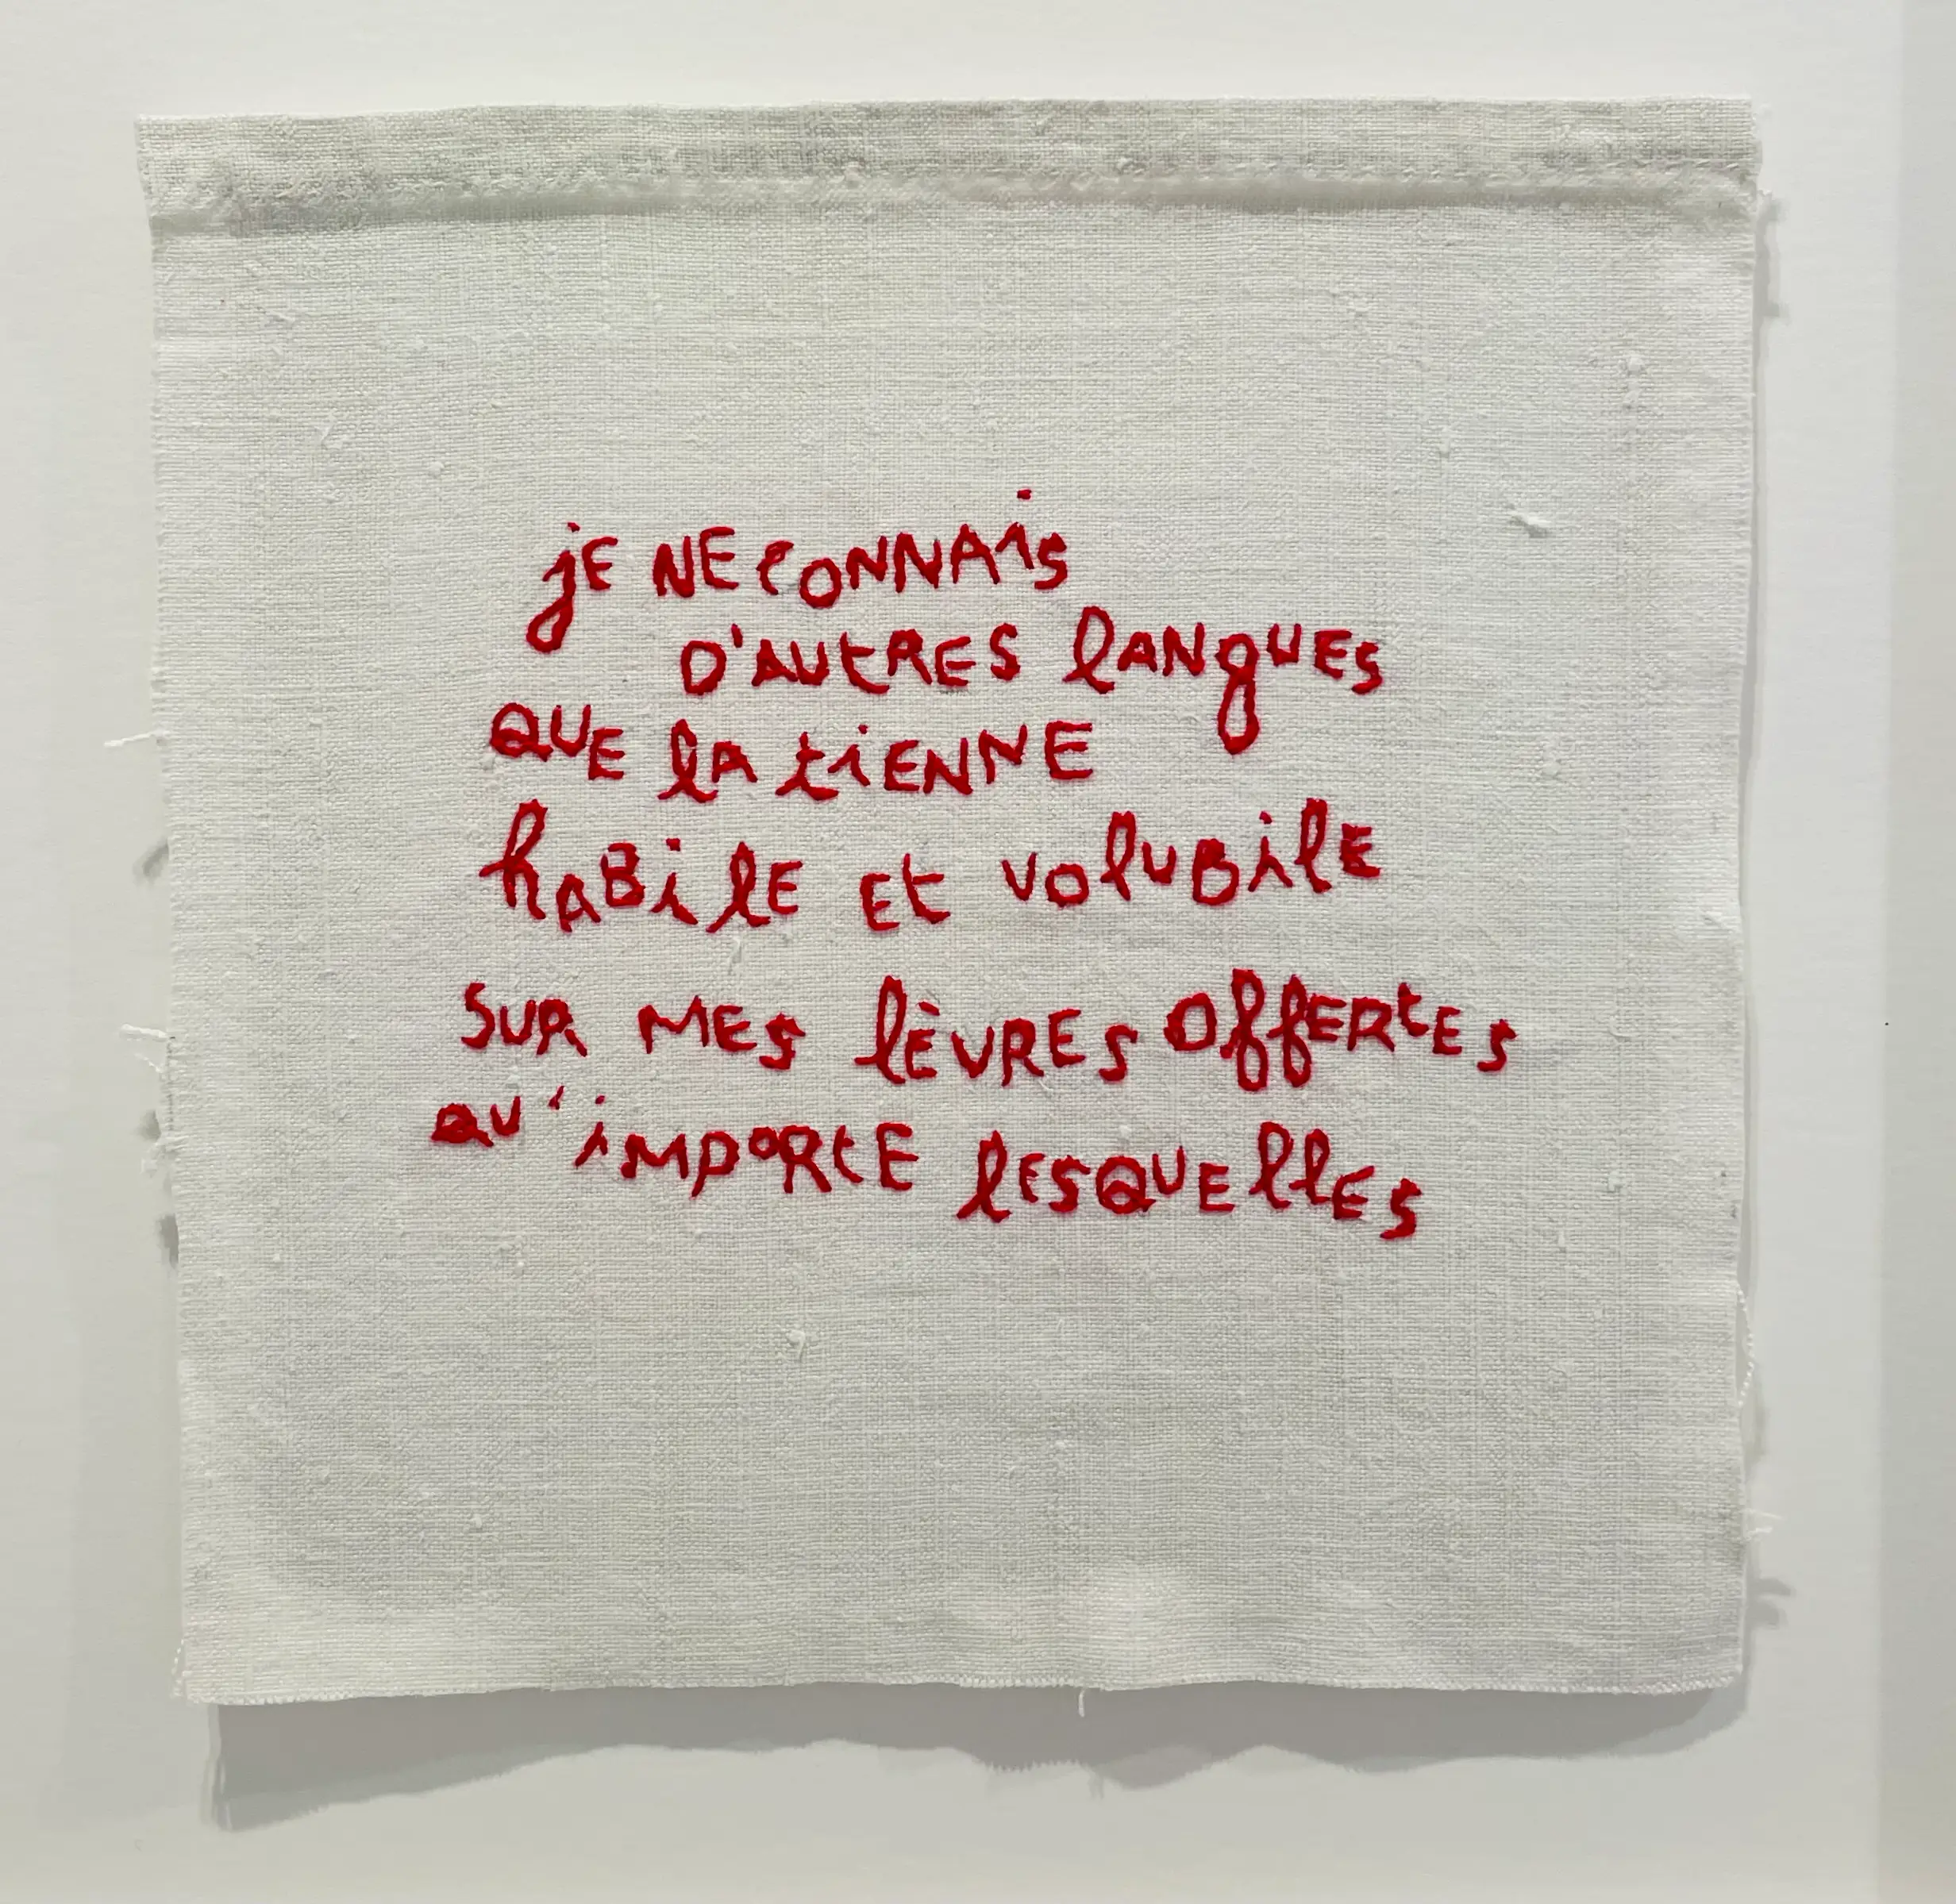 jE NE CONNAis
D'AUtRES lANgUES
QUE lA tiENNE
hABilE Et VOlUBilE
SUR MES lÈVRES OffERtES
QU'iMPORtE lESQUEllES